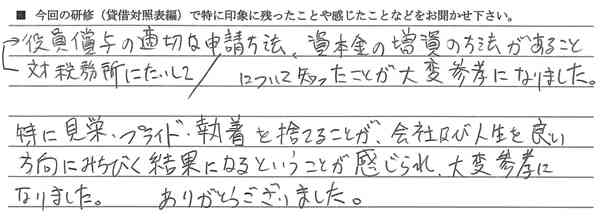 ■ 今回の研修（貸借対照表編）で特に印象に残ったことや感じたことなどをお聞かせ下さい。
役員償与の適切な申請方法、資本金の増資の方法があること
対税務所にたいして について知ったことが大変参考になりました。
特に見栄・プライド・執着を捨てることが、会社及び人生を良い
方向にみちびく結果になるということが感じられ、大変参考に
なりました。 ありがとうございました。